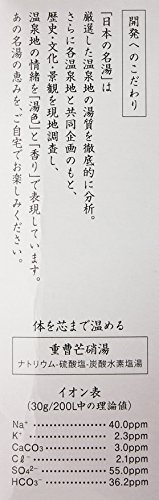 開発へのこだわり
「日本の名湯」は
厳選した温泉地の湯質を徹底的に分析。
さらに各温泉地と共同企画のもと、
歴史・文化・景観を現地調査し、
温泉地の情緒を「湯色」と「香り」で表現しています。
あの名湯の恵みを、ご自宅でお楽しみください。
体を芯まで温める
重曹芒硝湯
ナトリウム-硫酸塩-炭酸水素塩湯
イオン表
(30g/200L中の理論値)
Na⁺ 40.0ppm
K⁺ 2.3ppm
CaCO₃ 3.0ppm
Cℓ⁻ 2.1ppm
SO4²⁻ 55.0ppm
HCO₃⁻ 36.2ppm